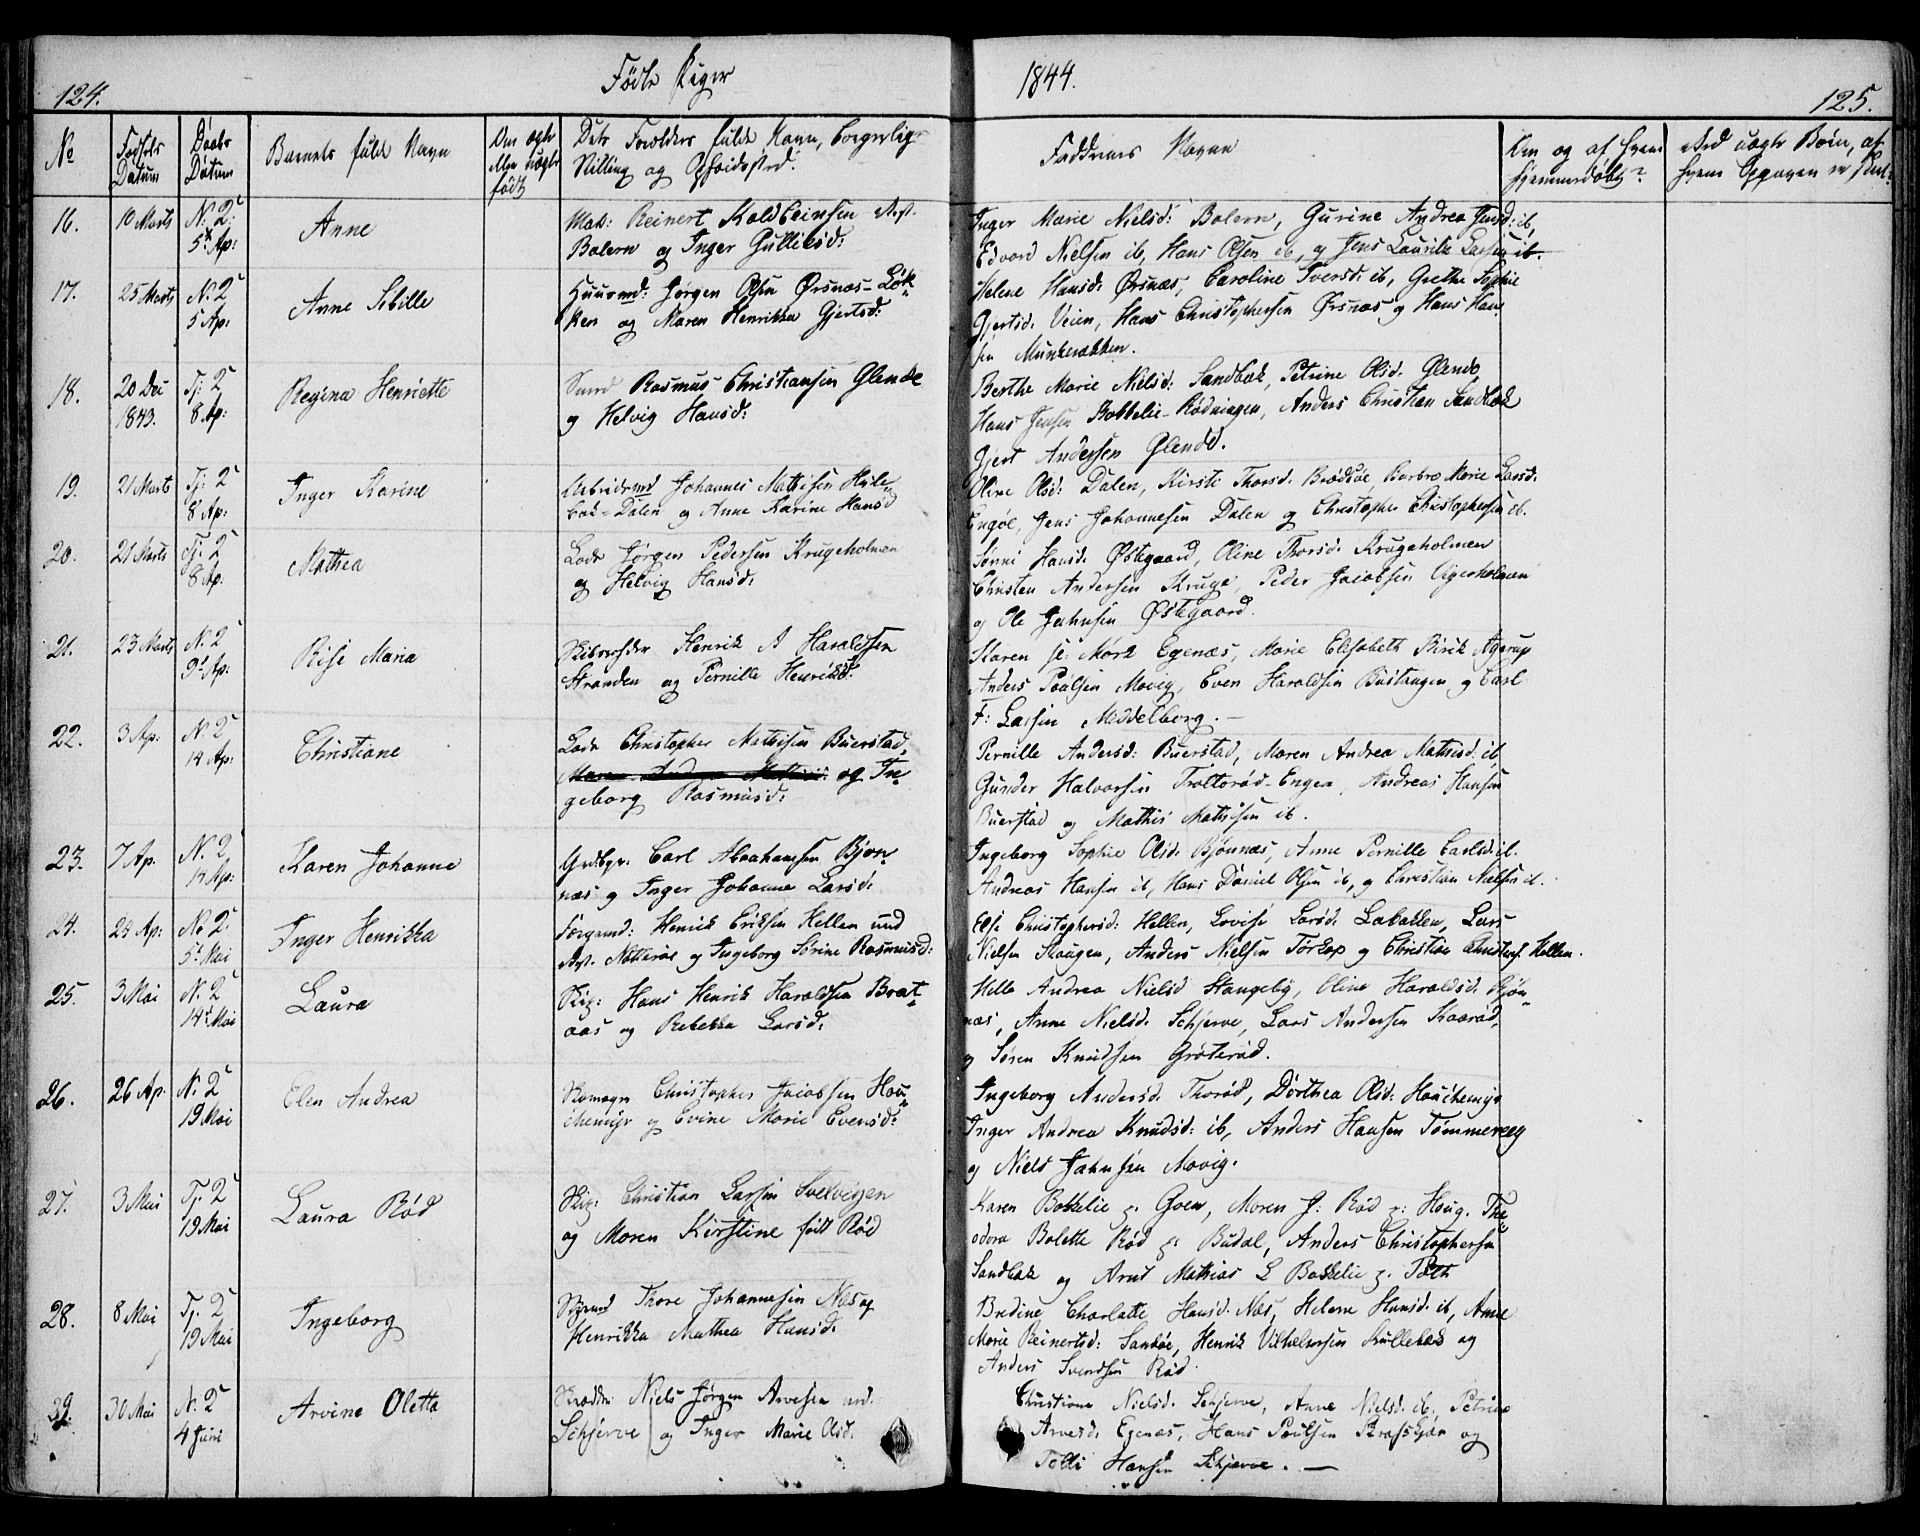 124.
Fødte Piger
1844.
125.
No
Fødsels Datum
Daabs Datum
Barnets fulde Navn
Om ægte eller uægte født
Dets Forældres fulde Navn, borgerlige Stilling og Opholdssted.
Faddernes Navne
Om og af hvem hjemmedøbt?
Ved uægte Børn, af hvem Opgaven er skeet.
16.
10 Marts
N. 2
5t Ap:
Anne
Mat: Reinert Koldbeinsen Vest.
Bolern og Inger Gulliksd:
Inger Marie Nielsd: Bolern, Gurine Andrea Jensd: ib,
Edvard Nielsen ib, Hans Olsen ib, og Jens Lauritz Larsen ib.
17.
25 Marts
N. 2
5 Ap:
Anne Sibille
Huusmd: Jørgen Olsen Ørsnæs-Løk-
ken og Maren Henrikka Gjertsd:
Helene Hansd: Ørsnæs, Caroline Iversd: ib, Grethe Sophie
Gjertsd: Veien, Hans Christophersen Ørsnæs og Hans Han
sen Munkerækken.
18.
20 Dec
1843.
Tj: 2
8 Ap:
Regina Henriette
Rasmus Christiansen Glende
og Helvig Hansd:
Berthe Marie Nielsd: Sandbæk, Petrine Olsd. Glende
Hans Jensen Bakkelie-Rødningen, Anders Christian Sandbæk
Gjert Andersen Glende.
19.
21 Marts
Tj: 2
8 Ap:
Inger Karine
Arbeidsmd Johannes Mathisen Hyle
bak-Dalen og Anne Karine Hansd
Oline Olsd: Dalen, Kirsti Thorsd. Brødsøe, Barbro Marie Larsd.
Engøe, Jens Johannesen Dalen og Christopher Christophersen ib.
20.
21 Marts
Tj: 2
8 Ap:
Mathea
Lods Jørgen Pedersen Krugeholmen
og Helvig Hansd:
Sønni Hansd: Østegaard, Oline Thorsd. Krugeholmen
Christen Andersen Kruge, Peder Jacobsen
og Ole Jahnsen Østegaard.
21.
23 Marts
N. 2
9t Ap:
Rise Maria
Skibsreder Henrik A Haraldsen
Stranden og Pernille Henriksd:
Karen Mørk Egenæs, Marie Elisabeth Birik Agerup
Anders Poulsen Movig, Even Haraldsen Bustangen og Carl
F: Larsen Middelborg.—
22.
3 Ap:
N. 2
14 Ap:
Christiane
Lods Christopher Mathisen Buerstad,
Maren Andrea Mathisd: og In-
geborg Rasmusd:
Pernille Andersd: Buerstad, Maren Andrea Mathisd: ib,
Gunder Halvorsen Troltorød-Engen, Andreas Hansen
Buerstad og Mathis Mathisen ib.
23.
7 Ap.
N. 2
14 Ap:
Karen Johanne
Grdbgr: Carl Abrahamsen Bjøn
næs og Inger Johanne Larsd:
Ingeborg Sophie Olsd: Bjønnæs, Anne Pernille Carlsd: ib.
Andreas Hansen ib, Hans Daniel Olsen ib, og Christian Nielsen ib.
24.
24 Ap:
No 2
5t Mai
Inger Henrikka
Henrik Eriksen Hellen und
Vest. Nøtterøe og Ingeborg Sørine Rasmusd:
Else Christophersd: Hellen, Lovise Larsd: Labakken, Lars
Nielsen Skaugen, Anders Nielsen Torkop og Christian Christens. Hellen.
25.
3 Mai
N. 2
14t Mai
Laura
Skip: Hans Henrik Haraldsen Brat-
aas og Rebekka Larsd:
Helle Andrea Nielsd Stangeby, Oline Haraldsd: Bjøn-
næs, Anne Nielsd. Schjerve, Lars Andersen Kaarød,
og Søren Knudsen Grøterød.
26.
26 Ap.
N. 2
19 Mai
Elen Andrea
Skomagr Christopher Jacobsen Hou-
chemyr og Evine Marie Evensd:
Ingeborg Andersd: Thorød, Dorthea Olsd: Houchemyr
Inger Andrea Knudsd: ib, Anders Hansen Tømmereeg
og Niels Jahnsen Movig.
27.
3 Mai
Tj. 2
19 Mai
Laura Rød
Skip: Christian Larsen Svelvigen
og Maren Kirstine født Rød
Karen Bakkelie g. Goen, Maren J: Rød g: Houg. The
odora Bolette Rød g: Budal, Anders Christophersen
Sandbæk og Arnt Mathias L Bakkelie g. Toth
28.
8 Mai
Tj. 2
19 Mai
Ingeborg
Thore Johannesen Næs og
Henrikka Mathea Hansd:
Bredine Charlotte Hansd: Næs, Helene Hansd: ib, Anne
Marie Reinertsd: Sandøe, Henrik Vilhelmsen Kullebak og
Anders Svendsen Rød.
29.
30 Mai
N. 2
4 Juni
Arvine Oletta
Skrædder Niels Jørgen Arvesen und.
Schjerve og Inger Marie Olsd.
Christiane Nielsd. Schjerve, Anne Nielsd. ib, Petrine
Arvesd: Egenæs, Hans Poulsen og
Tolli Hansen Schjerve.—